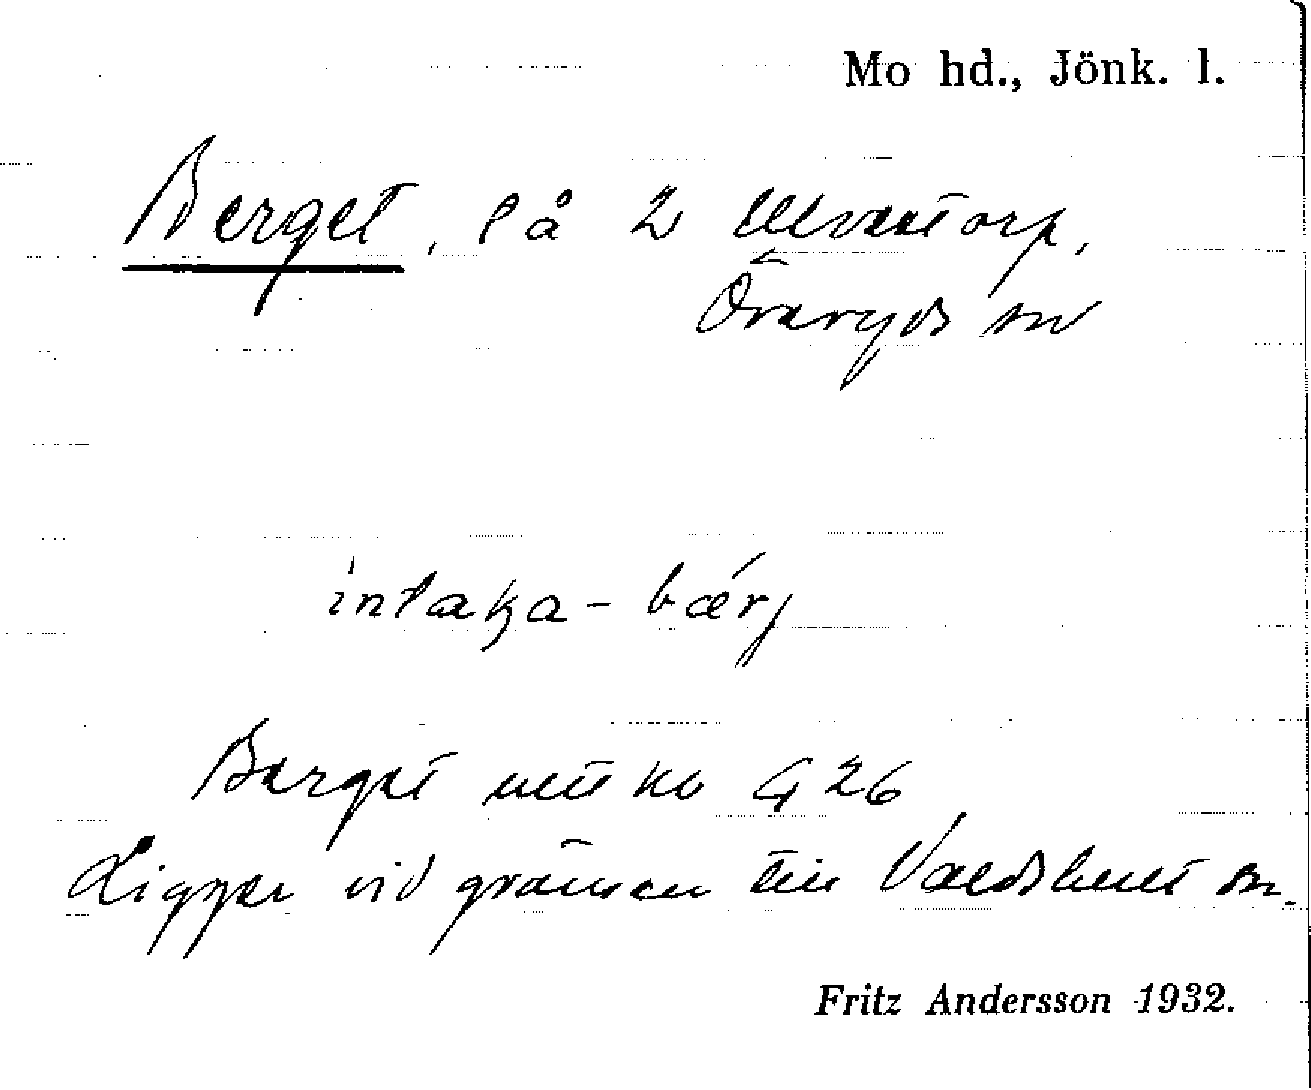 Mo hd., Jönk. l.
Berget, på 2 Ulvstorp,
Öreryds sn
intaka-bærj
Berget utt ko G 26
Ligger vid gränsen till Valdshult sn.
Fritz Andersson 1932.